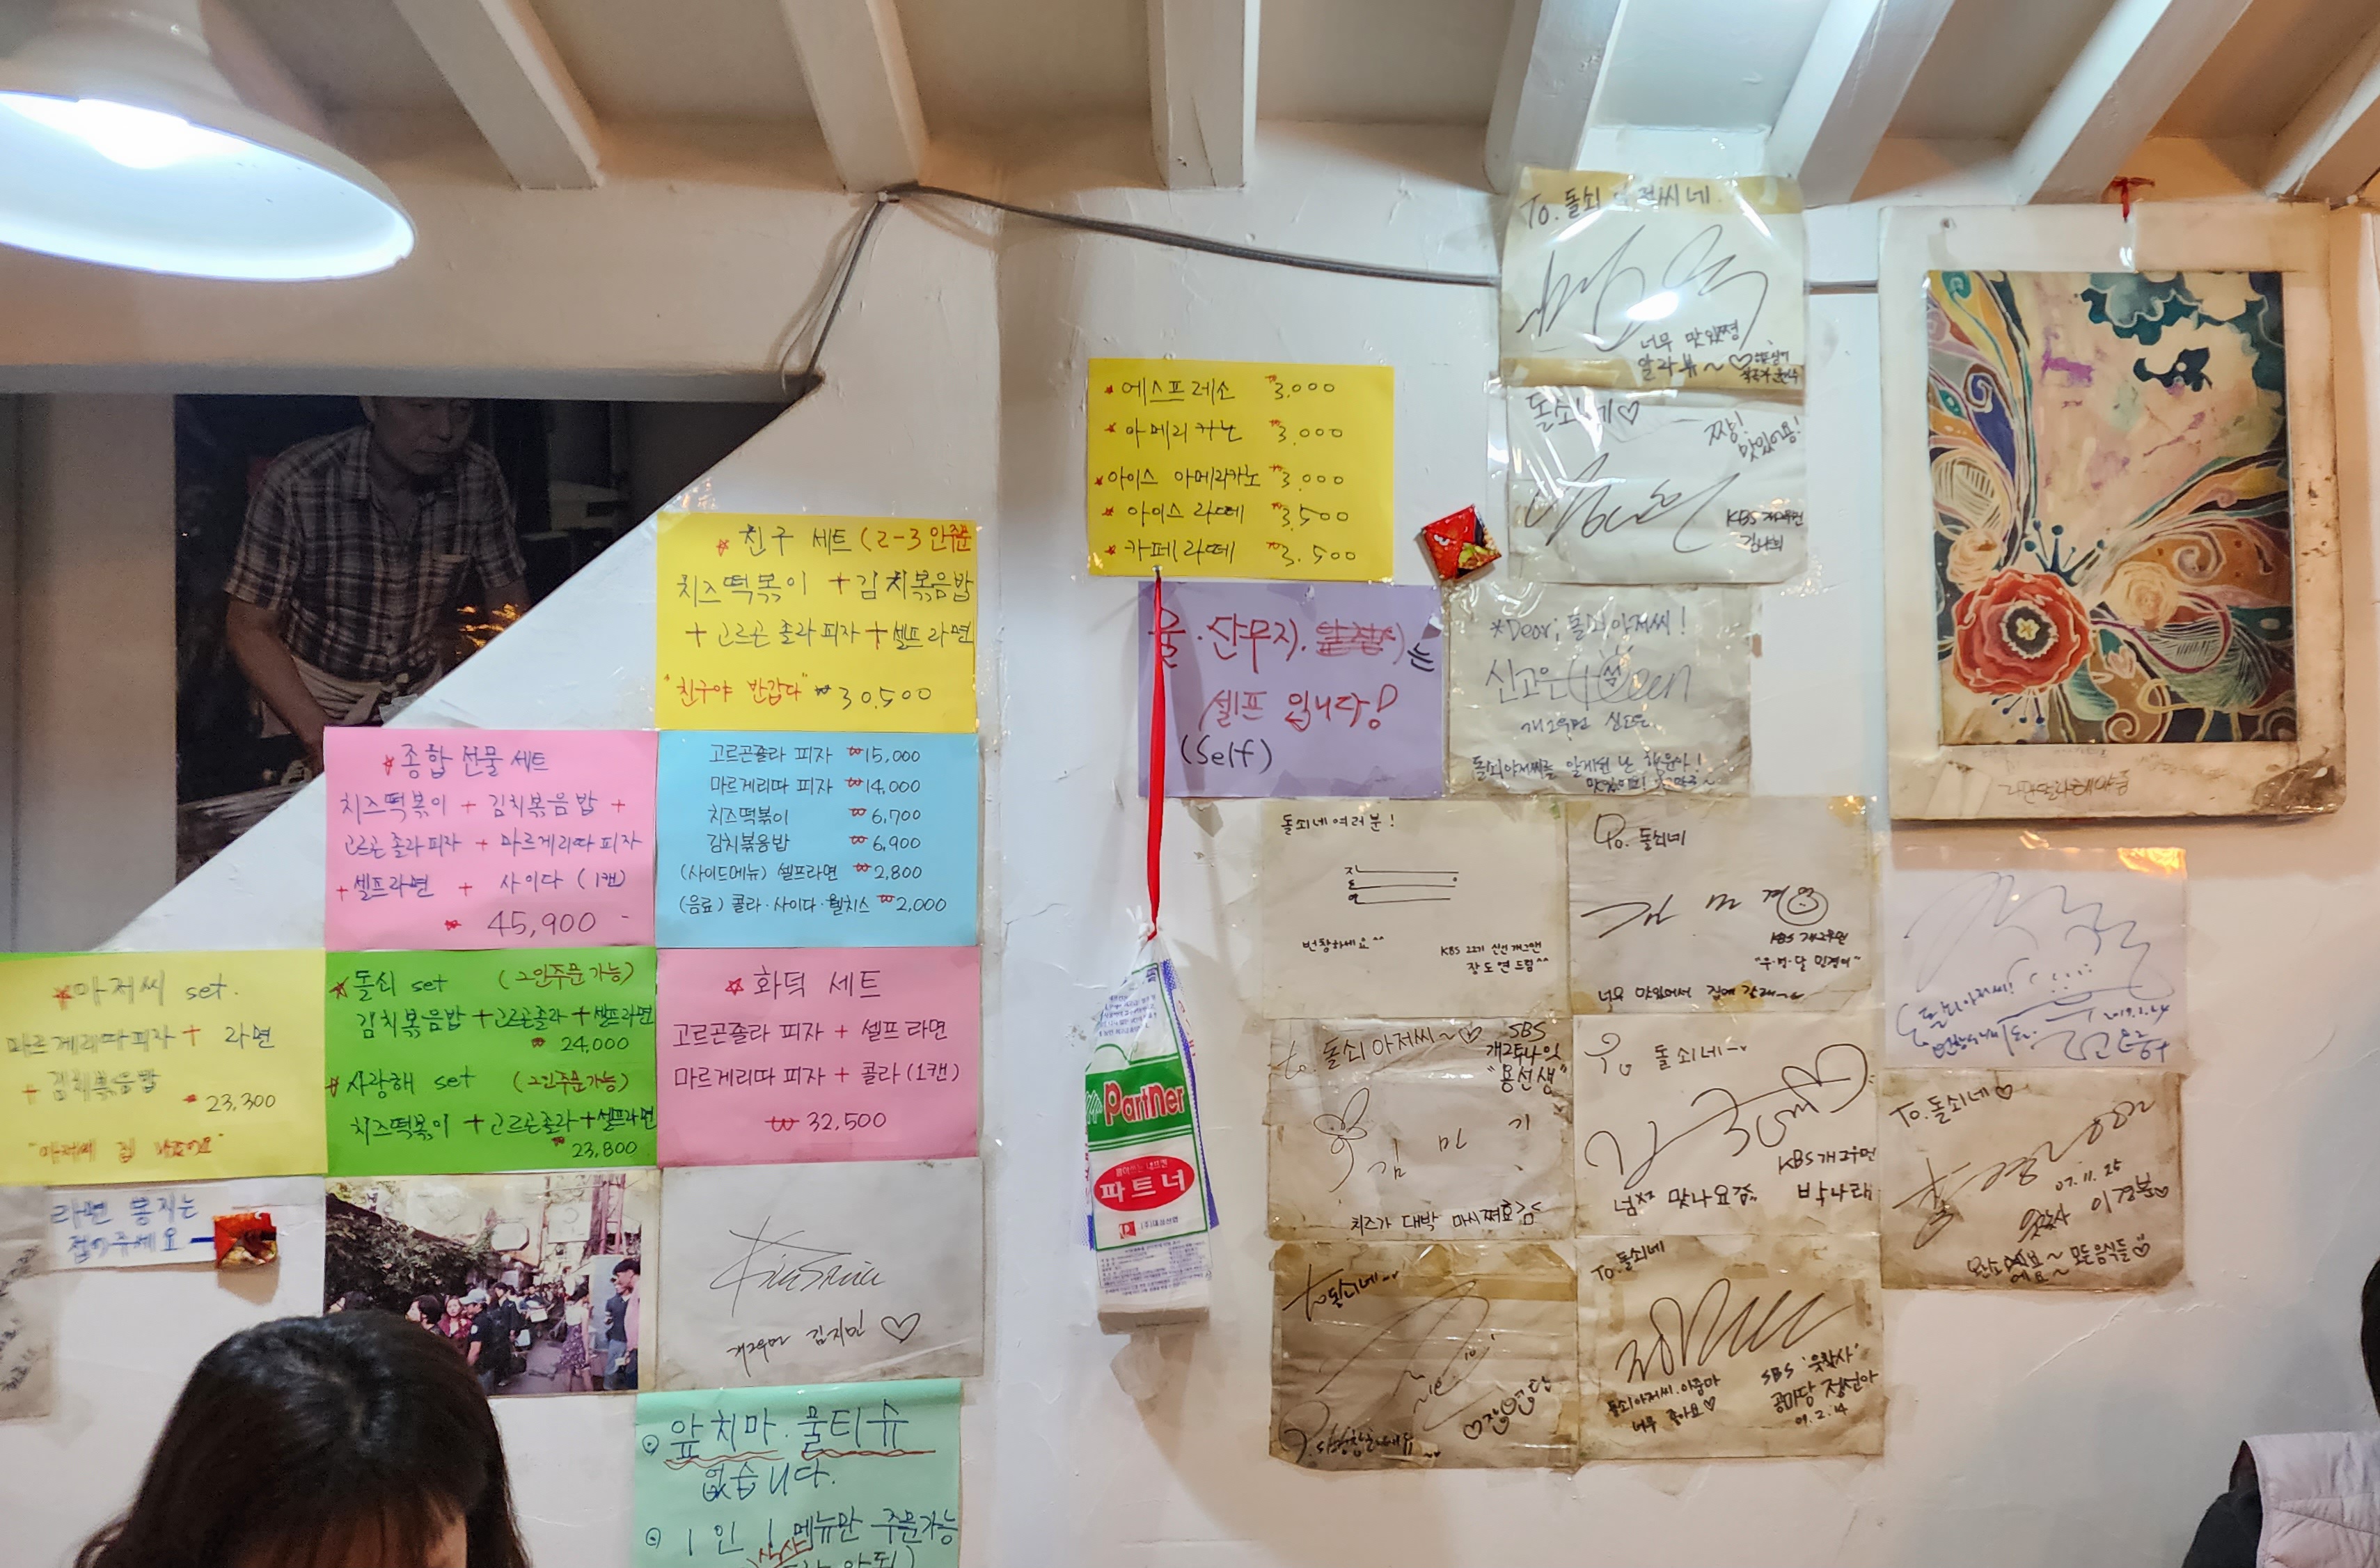 ★친구 세트 (2-3인주문
치즈떡볶이 + 김치볶음밥
+ 고르곤졸라피자 + 셀프라면
"친구야 반갑다" ₩30,500
★종합선물세트
치즈떡볶이 + 김치볶음밥 +
고르곤졸라피자 + 마르게리따피자
+ 셀프라면 + 사이다 (1캔)
₩ 45,900
고르곤졸라 피자 ₩15,000
마르게리따 피자 ₩14,000
치즈떡볶이 ₩6,700
김치볶음밥 ₩6,900
(사이드메뉴) 셀프라면 ₩2,800
(음료) 콜라·사이다·웰치스 ₩2,000
★아저씨 set.
마르게리따피자 + 라면
+ 김치볶음밥
23,300
★돌쇠 set (2인주문가능)
김치볶음밥 + 고르곤졸라 + 셀프라면
₩ 24,000
★사랑해 set (2인주문가능)
치즈떡볶이 + 고르곤졸라 + 셀프라면
₩ 23,800
★화덕 세트
고르곤졸라 피자 + 셀프라면
마르게리따 피자 + 콜라 (1캔)
₩ 32,500
라면 봉지는
접어주세요
개그우먼 김지민 ♡
⊙ 앞치마·물티슈
없습니다.
⊙ 1인 1메뉴만 주문가능
★에스프레소 ₩3,000
★아메리카노 ₩3,000
★아이스 아메리카노 ₩3,000
★아이스라떼 ₩3,500
★카페라떼 ₩3,500
물·단무지.
는
셀프입니다!
(Self)
Partner
파트너
To. 돌쇠아저씨네
너무 맛있쪙
알라뷰~♡
돌쇠네♡
짱!
맛있어용!
KBS 개그우먼
*Dear; 돌쇠아저씨!
신고은
개그우먼 신고은
돌쇠네여러분!
번창하세요^^
KBS 22기 신인개그맨
장도연드림^^
To. 돌쇠네
김민경
KBS 개그우먼
너무 맛있어서 집에 갈래~
to. 돌쇠아저씨~♡
SBS
개그투나잇
"용선생"
김민기
치즈가 대박
To 돌쇠네~
KBS개그우먼
박나래
맛나요
돌쇠아저씨!
2019.2.24
To. 돌쇠네♡
07.11.25
모든음식들♡
to돌쇠네~
To. 돌쇠네
돌쇠아저씨.아줌마
너무 좋아요♡
SBS '웃찾사'
정선아
09.2.14